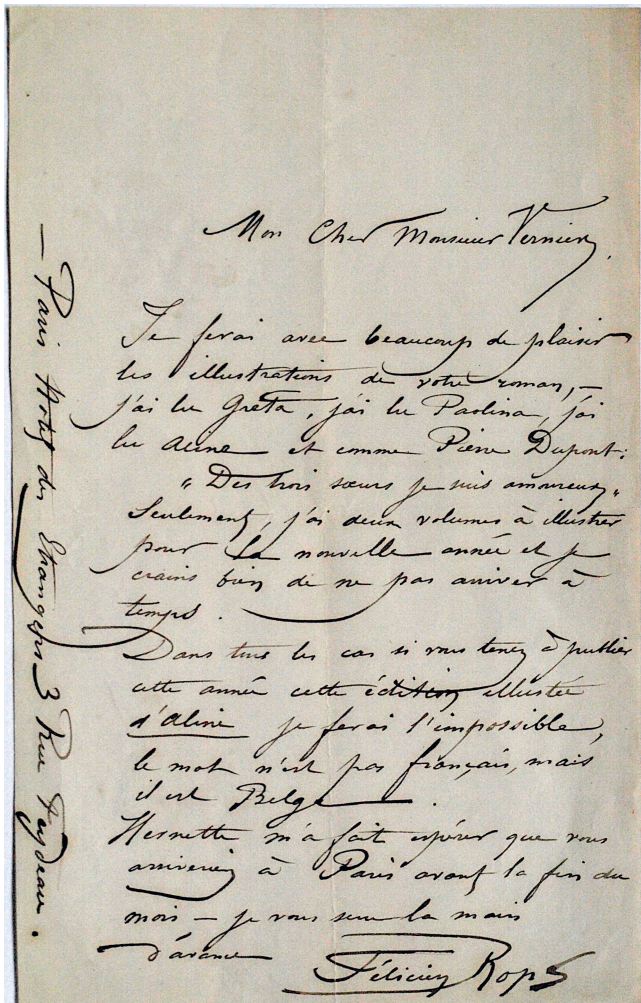 Mon Cher Monsieur Vernier,
Je ferai avec beaucoup de plaisir
les illustrations de votre roman, —
j'ai lu Greta, j'ai lu Paolina, j'ai
lu Aline et comme Pierre Dupont:
"Des trois sœurs je suis amoureux"
Seulement, j'ai deux volumes à illustrer
pour la nouvelle année et je
crains bien de ne pas arriver à
temps.
Dans tous les cas si vous tenez à publier
cette année cette édition illustrée
d'Aline je ferai l'impossible,
le mot n'est pas français, mais
il est Belge.
m'a fait espérer que vous
arriveriez à Paris avant la fin du
mois — je vous serre la main
d'avance
Félicien Rops
— Paris Hotel des Etrangers 3 Rue Feydeau.